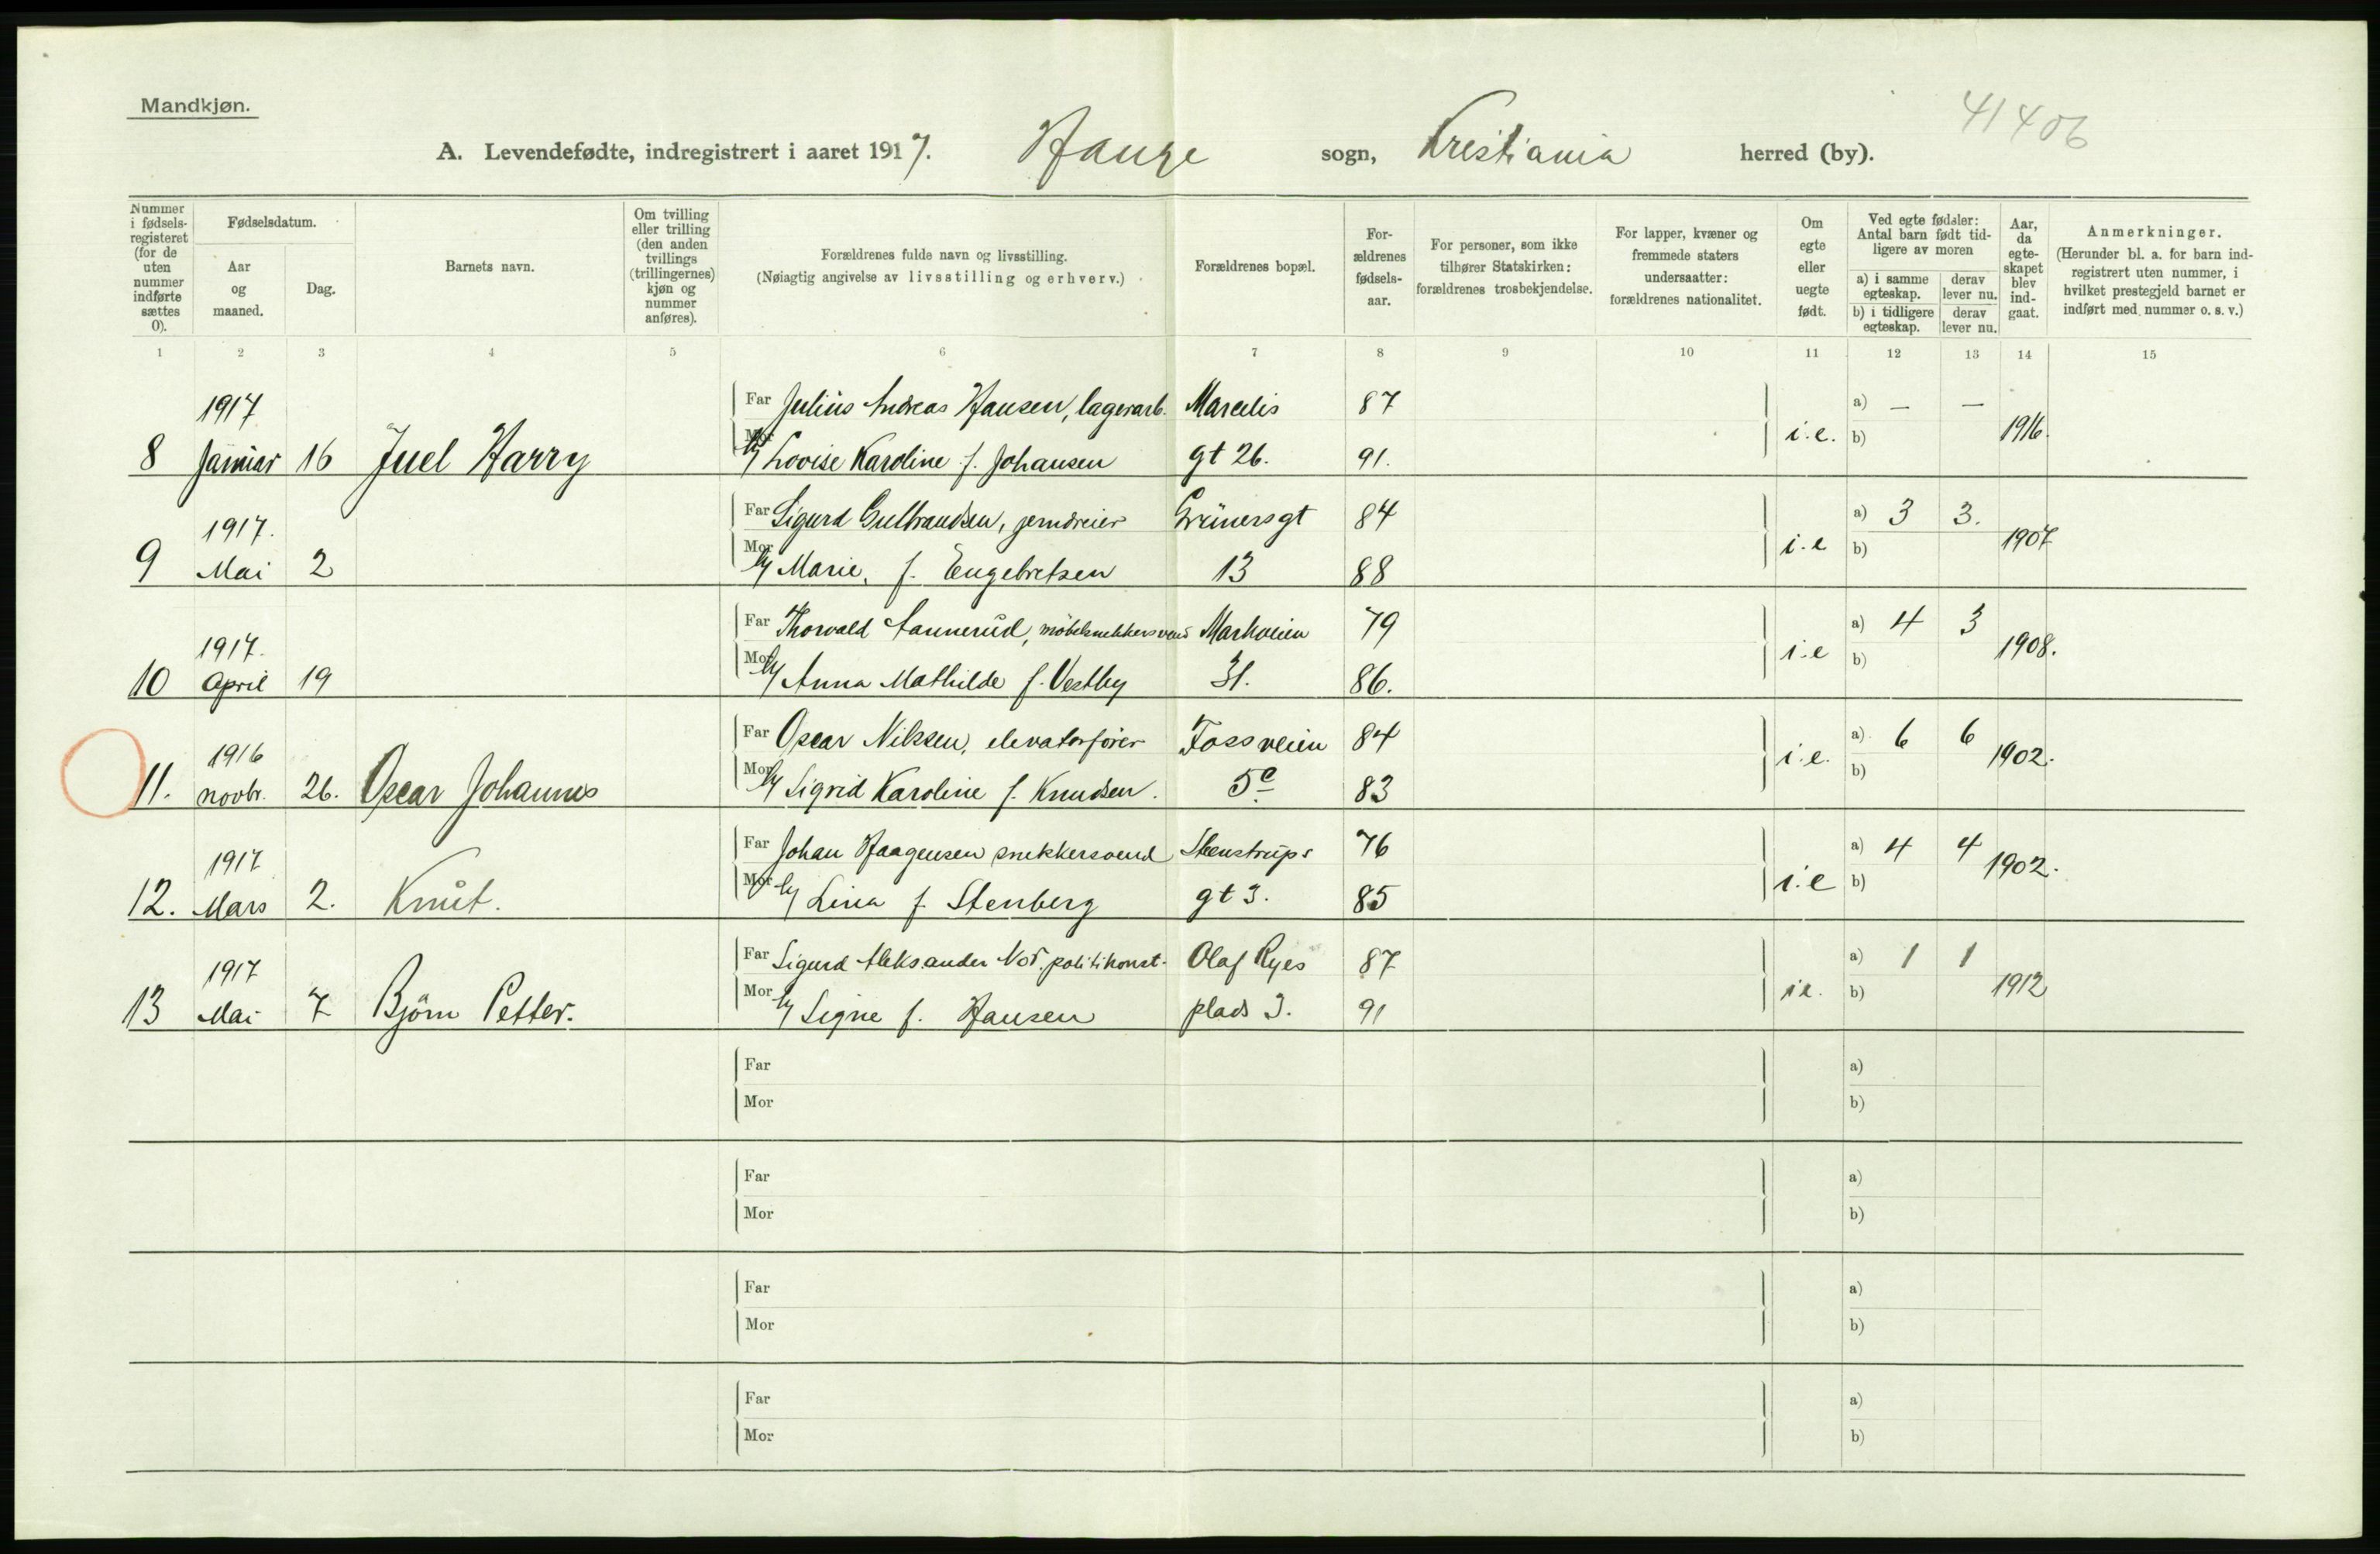 Mandkjøn.
41406
A. Levendefødte, indregistrert i aaret 1917. Hauge sogn, Kristiania herred (by).
Nummer i fødsels-registeret (for de uten nummer indførte sættes 0).
Fødselsdatum.
Aar og maaned.
Dag.
Barnets navn.
Om tvilling eller trilling (den anden tvillings (trillingernes) kjøn og nummer anføres).
Forældrenes fulde navn og livsstilling.
(Nøiagtig angivelse av livsstilling og erhverv.)
Forældrenes bopæl.
For-ældrenes fødsels-aar.
For personer, som ikke tilhører Statskirken: forældrenes trosbekjendelse.
For lapper, kvæner og fremmede staters undersaatter: forældrenes nationalitet.
Om egte eller uegte født.
Ved egte fødsler: Antal barn født tid-ligere av moren
a) i samme egteskap. derav lever nu.
b) i tidligere egteskap. derav lever nu.
Aar, da egte-skapet blev ind-gaat.
Anmerkninger.
(Herunder bl. a. for barn ind-registrert uten nummer, i hvilket prestegjeld barnet er indført med nummer o. s. v.)
1 2 3 4 5 6 7 8 9 10 11 12 13 14 15
1917 Far Julius Andreas Hansen, lagerarb. Marcelis 87 a) — —
8 Januar 16 Juel Harry Mor Lovise Karoline f. Johansen gt 26. 91. i.e. b) 1916.
1917. Far Sigurd Gulbrandsen, jerndreier Grünersgt 84 a) 3 3.
9 Mai 2 Mor Marie, f. Engebretsen 13 88 i.e b) 1907
1917. Far Thorvald Sannerud, möbelsnekkersvend Markveien 79 a) 4 3
10 April 19 Mor Anna Mathilde f. Vestby 31. 86. i.e b) 1908.
1916 Far Oscar Nilssen, elevatorförer Fossveien 84 a) 6 6
11. novbr. 26. Oscar Johannes Mor Sigrid Karoline f. Knudsen. 5c 83 i.e. b) 1902.
1917 Far Johan Haagensen snekkersvend Steenstrups 76 a) 4 4
12. Mars 2. Knut. Mor Lina f. Stenberg gt 3. 85 i.e b) 1902.
1917 Far Sigurd Aleksander politikonst. Olaf Ryes 87 a) 1 1
13 Mai 7 Björn Petter. Mor Signe f. Hansen plads 3. 91 i.e. b) 1912
Far a)
Mor b)
Far a)
Mor b)
Far a)
Mor b)
Far a)
Mor b)